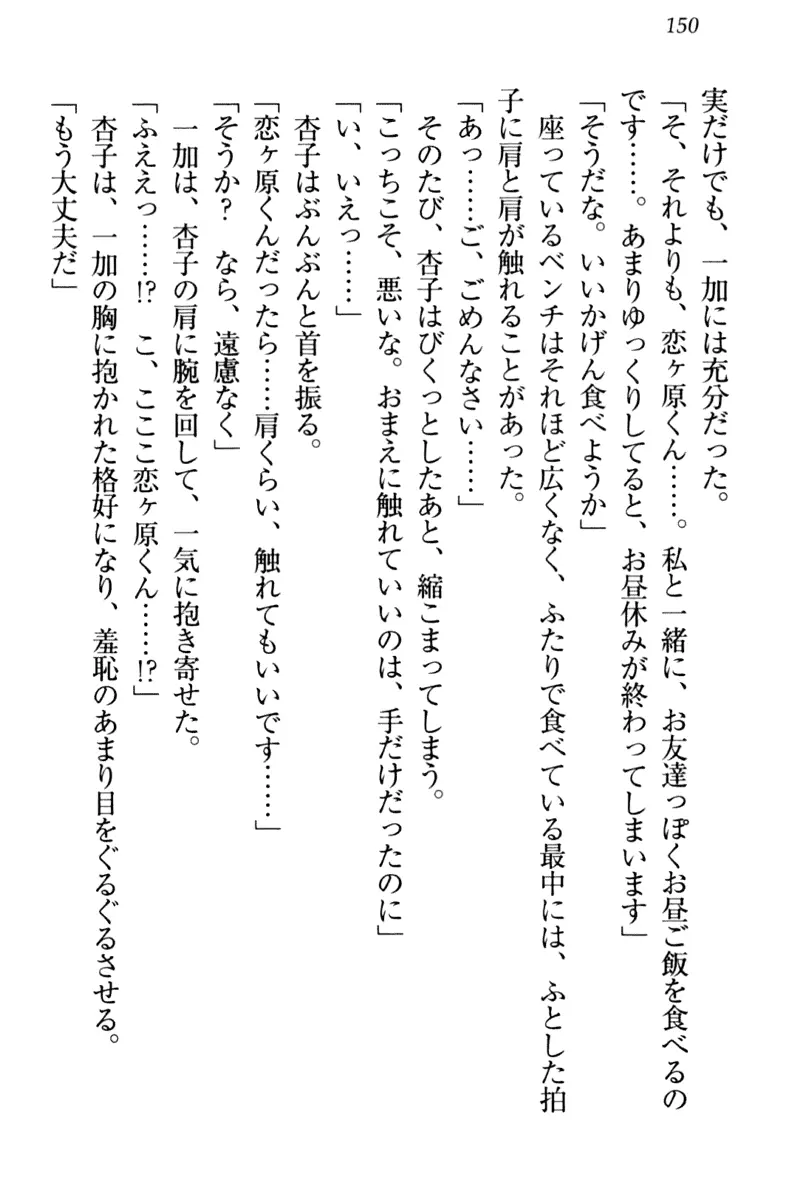 150
実だけでも、一加には充分だった。
「そ、それよりも、恋ヶ原くん……。私と一緒に、お友達っぽくお昼ご飯を食べるの
です……。あまりゆっくりしてると、お昼休みが終わってしまいます」
「そうだな。いいかげん食べようか」
座っているベンチはそれほど広くなく、ふたりで食べている最中には、ふとした拍
子に肩と肩が触れることがあった。
「あっ……ご、ごめんなさい……」
そのたび、杏子はびくっとしたあと、縮こまってしまう。
「こっちこそ、悪いな。おまえに触れていいのは、手だけだったのに」
「い、いえっ……」
杏子はぶんぶんと首を振る。
「恋ヶ原くんだったら……肩くらい、触れてもいいです……」
「そうか？　なら、遠慮なく」
一加は、杏子の肩に腕を回して、一気に抱き寄せた。
「ふええっ……!?　こ、ここここ恋ヶ原くん……!?」
杏子は、一加の胸に抱かれた格好になり、羞恥のあまり目をぐるぐるさせる。
「もう大丈夫だ」